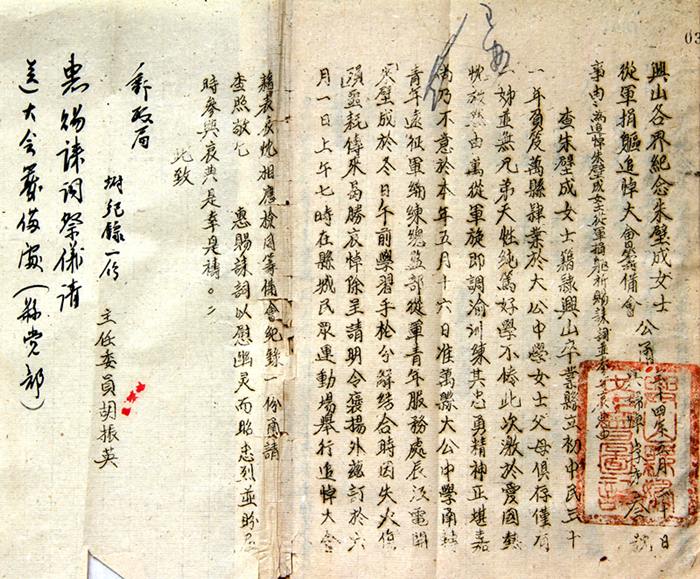 興山各界紀念朱璧成女士
從軍捐軀追悼大會籌備會 公函
事由:為追悼朱璧成女士從軍捐軀祈賜誄詞
查朱璧成女士籍隸興山卒業縣立初中民三十
一年負笈萬縣肄業於大公中學女士父母俱存僅有
一姊並無兄弟天性純篤好學不倦此次激於愛國熱
忱放棄由萬從軍旋即調渝训練其忠勇精神正堪嘉
尚乃不意於本年五月十六日准萬縣大公中學南轉
青年遠征軍編練總監部從軍青年服務處辰沒電開
朱璧成於冬日午前學習手枪分解結合時因失火傷
頭噩耗傳來曷勝哀悼除呈請明令褒揚外兹訂於六
月一日上午七時在縣城民眾運動場舉行追悼大會
藉表哀忱相應檢同籌備會紀錄一份函請
查照敬乞 惠賜誄詞以慰幽灵而昭忠烈並盼屆
時參與哀典是幸是禱。
此致
郵政局
坿紀錄一份
主任委員胡振英
惠錫誄詞祭儀請
送大会籌備處(縣党部)
03